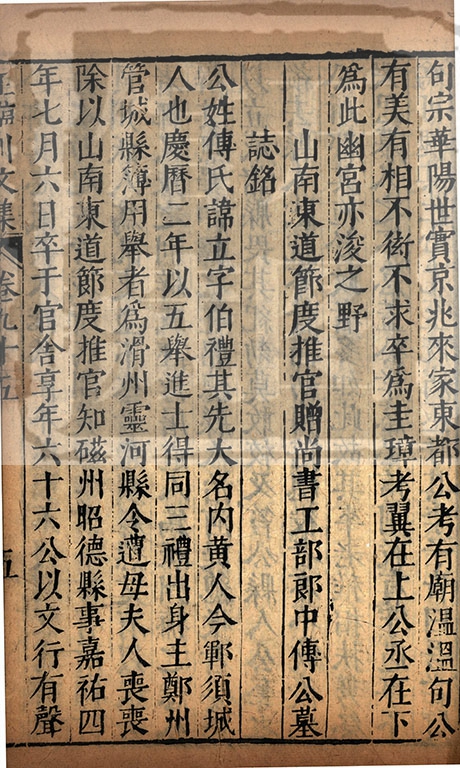 句宗華陽世實京兆來家東都公考有廟溫溫句公
有美有相不衒不求卒爲圭璋考翼在上公丞在下
爲此幽宮亦浚之野
山南東道節度推官贈尚書工部郎中傅公墓
誌銘
公姓傅氏諱立字伯禮其先大名內黃人今鄆須城
人也慶曆二年以五舉進士得同三禮出身主鄭州
管城縣簿用舉者爲滑州靈河縣令遭母夫人喪喪
除以山南東道節度推官知磁州昭德縣事嘉祐四
年七月六日卒于官舍享年六十六公以文行有聲
王臨川文集 卷九十五 五